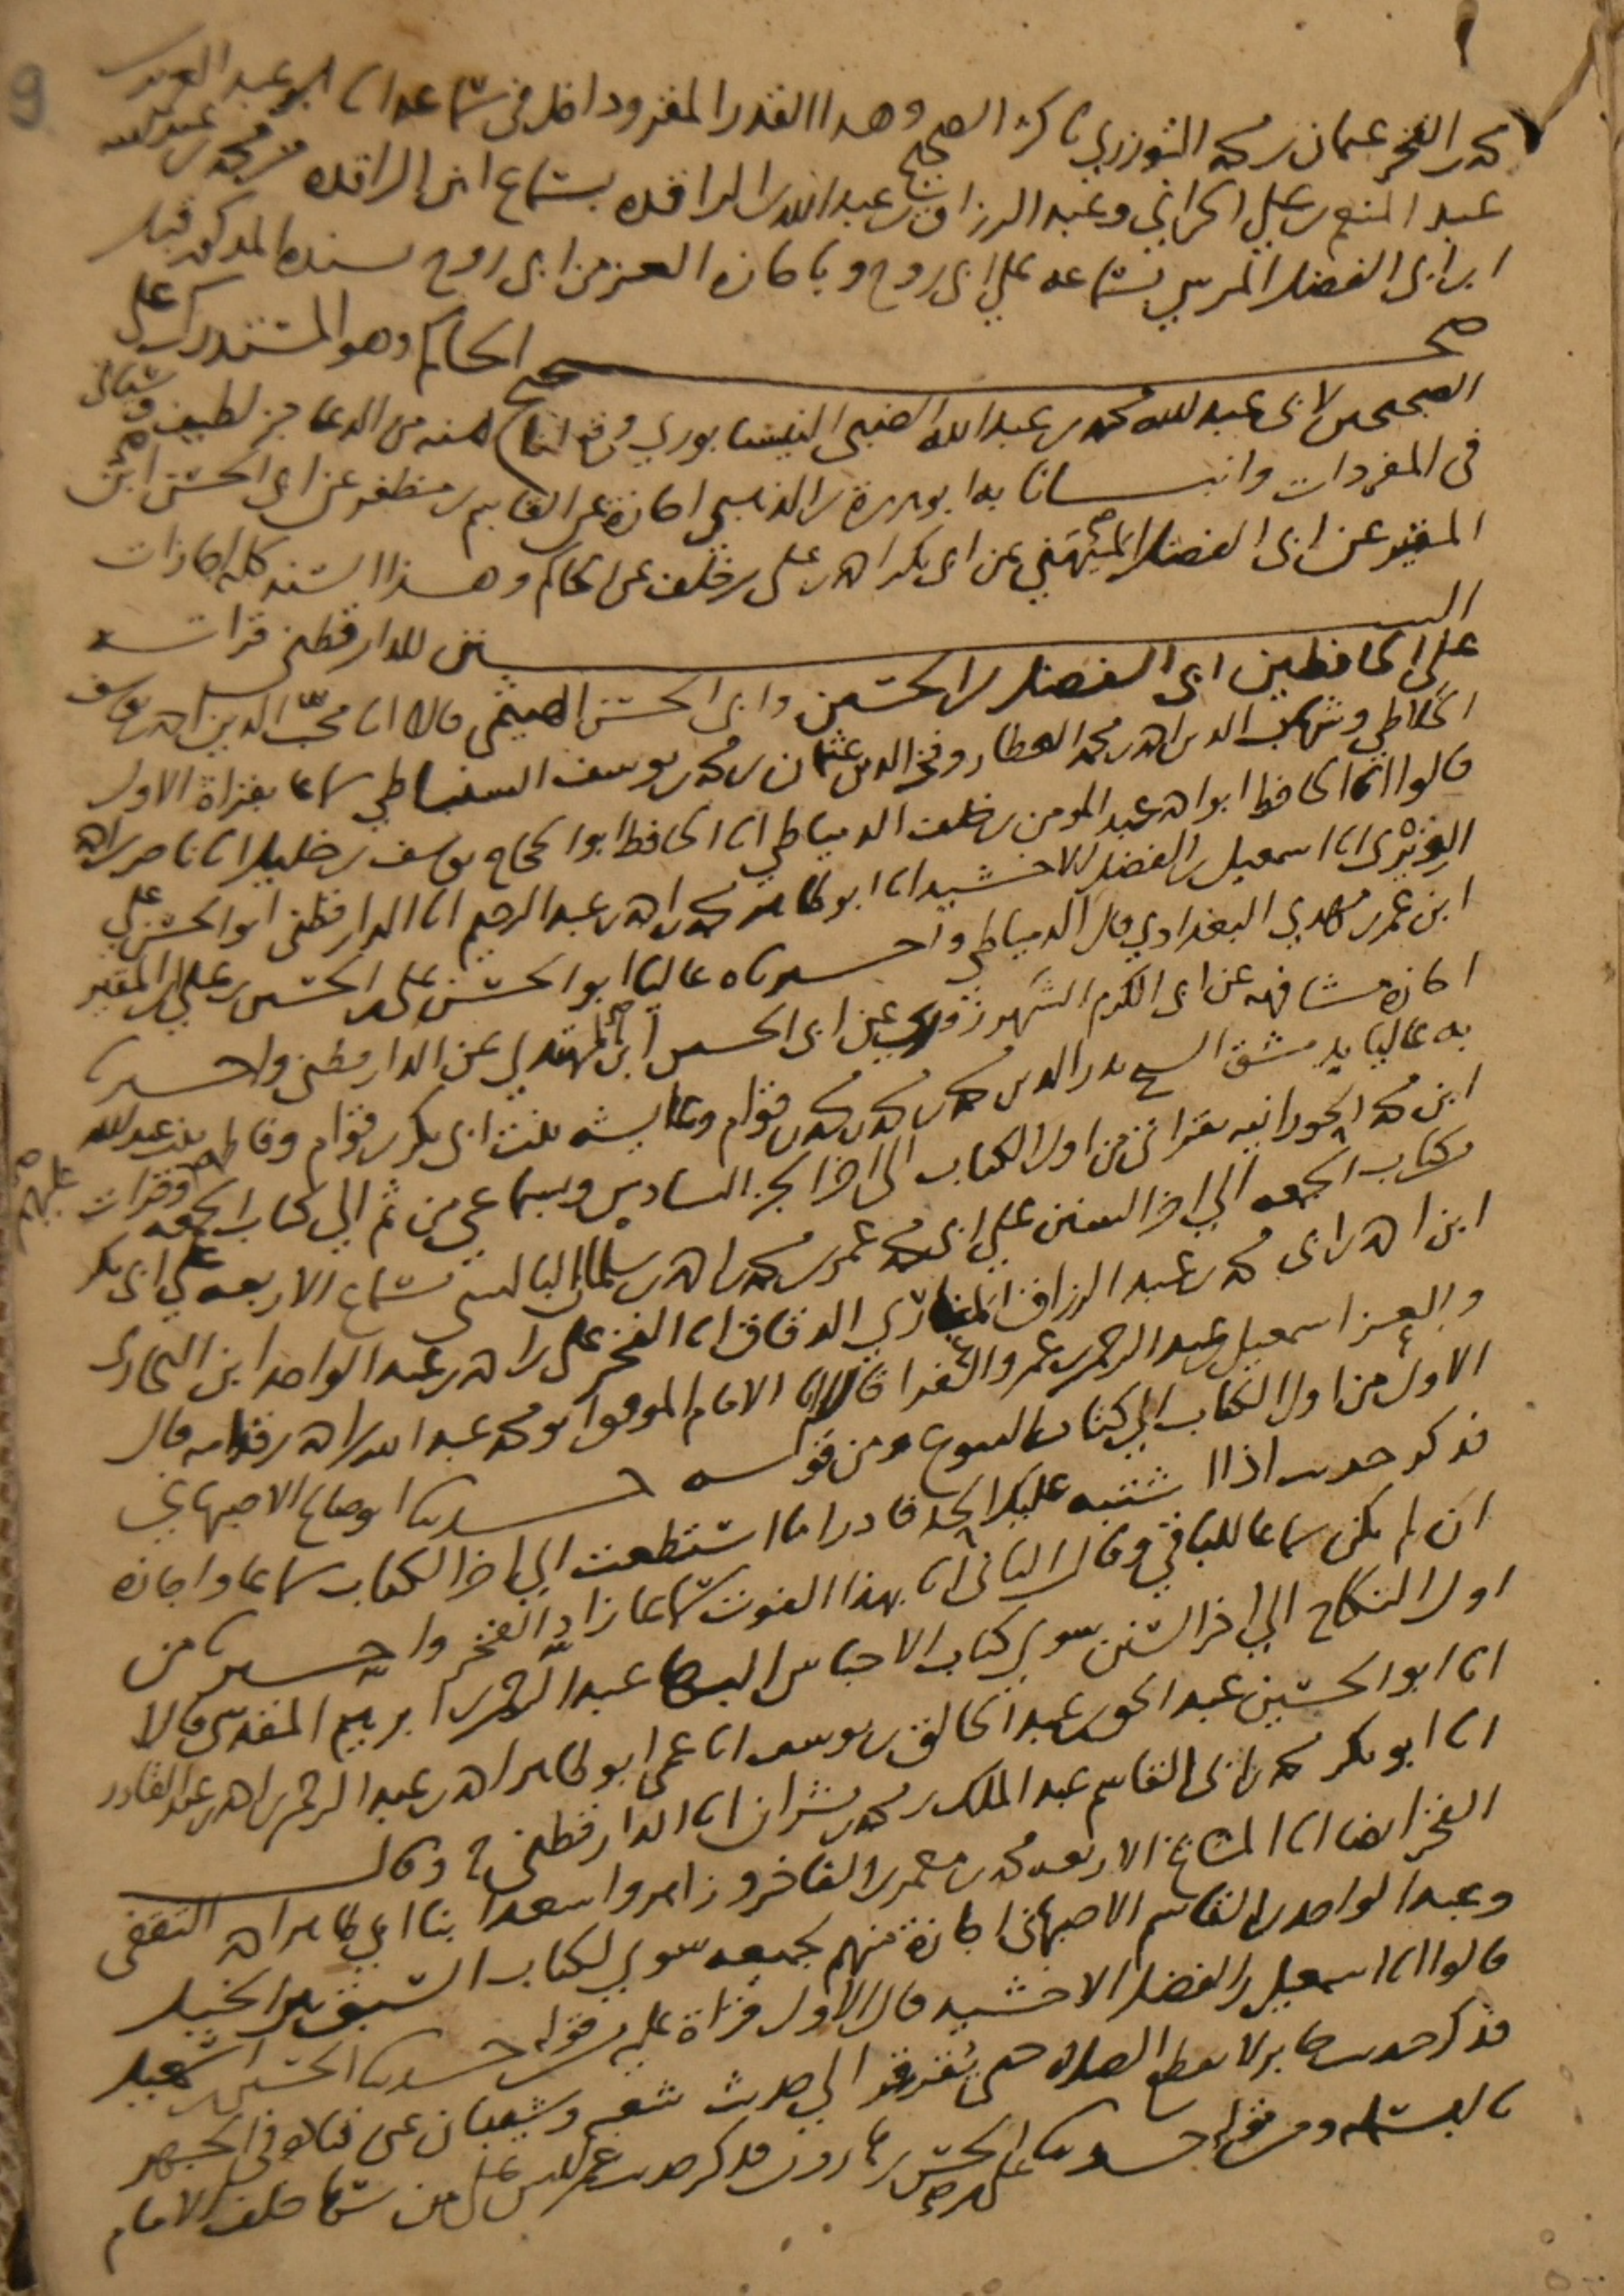 محمد بن الفخر عثمان بن محمد التوزري باكثر الصحيح وهذا القدر المقروء داخل في سماعه انا ابو عبد الله
عبد المنعم بن علي الحراني وعبد الرزاق بن عبد الله بسماع ابن من محمد بن عبد الله
ابن ابي الفضل المرسي بسماعه على ابي روح وباجازة العز من ابي روح بسنده المذكور قبله
صحيح الحاكم وهو المستدرك على
الصحيحين لابي عبد الله محمد بن عبد الله الضبي النيسابوري منه من الدعا جز لطيف وسياتي
في المفردات وانبانا به ابو هريرة بن الذهبي اجازة عن القاسم بن مظفر عن ابي الحسن ابن
المقير عن ابي الفضل الميهني عن ابي بكر احمد بن علي بن خلف عن الحاكم وهذا السند كله اجازات
السنن للدارقطني قرات
على الحافظين ابي الفضل بن الحسين وابي الحسن الهيثمي قالا انا محب الدين احمد بن يوسف
الخلاطي وشهاب الدين احمد بن محمد العطار وفخر الدين عثمان بن محمد بن يوسف السنباطي سماعا بقراة الاول
قالوا انا الحافظ ابو احمد عبد المومن بن خلف الدمياطي انا الحافظ ابو الحجاج يوسف بن خليل انا ناصر بن احمد
الويري انا اسمعيل بن الفضل الاخشيد انا ابو طاهر محمد بن احمد بن عبد الرحيم انا الدارقطني ابو الحسن علي
ابن عمر بن مهدي البغدادي قال الدمياطي واخبرناه عاليا ابو الحسن علي بن الحسين بن علي بن المقير
اجازة مشافهة عن ابي الكرم الشهرزوري عن ابي الحسين ابن المهتدي عن الدارقطني واخبرنا
به عاليا بدمشق الشيخ بدر الدين محمد بن محمد بن محمد بن قوام وعايشة بنت ابي بكر بن قوام وفاطمة بنت عبد الله
ابن محمد الحورانية بقراتي من اول الكتاب الى اخر الجز السادس وبسماعي من ثم الى كتاب الجمعة وقرات عليهم
كتاب الجمعة الى اخر السنن على ابي محمد عمر بن محمد بن احمد بن سلمان البالسي بسماع الاربعة على ابي بكر
ابن احمد بن ابي محمد بن عبد الرزاق المغاري الدقاق انا الفخر علي بن احمد بن عبد الواحد ابن البخاري
والعز اسمعيل بن عبد الرحمن بن عمرو الفرا قالا انا الامام الموفق ابو محمد عبد الله بن احمد بن قدامة قال
الاول من اول الكتاب الى كتاب البيوع ومن قوله حدثنا ابو صالح الاصبهاني
فذكر حديث اذا اشتبه عليك الحد فادرا ما استطعت الى اخر الكتاب سماعا واجازة
ان لم يكن سماعا للباقي وقال الثاني انا بهذا الفوت سماعا زاد الفخر واخبرنا من
اول النكاح الى اخر السنن سوى كتاب الاحباس البها عبد الرحمن بن ابرهيم المقدسي قالا
انا ابو الحسين عبد الحق بن عبد الخالق بن يوسف انا عمي ابو طاهر احمد بن عبد الرحمن بن احمد بن عبد القادر
انا ابو بكر محمد بن ابي القاسم عبد الملك بن محمد بن بشران انا الدارقطني ح وقال
الفخر ايضا انا المشايخ الاربعة محمد بن معمر بن الفاخر وزاهر واسعد ابنا ابي طاهر احمد الثقفي
وعبد الواحد بن القاسم الاصبهاني اجازة منهم بجميعه سوى لكتاب السبق بين الخيل
قالوا انا اسمعيل بن الفضل الاخشيد قال الاول قراة عليه قوله حدثنا الحسين بن اسمعيل
فذكر حديث جابر لا يقطع الصلاة حتى يقرقر الى حديث شعبة وشيبان عن قتادة في الجهر
بالبسملة ومن قوله حدثنا علي بن الحسن بن هارون فذكر حديث عمر ليس على من سها خلف الامام